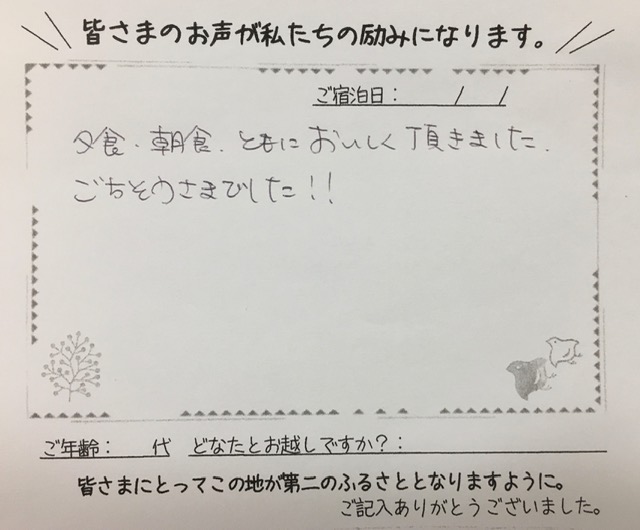 皆さまのお声が私たちの励みになります。
ご宿泊日: / /
夕食・朝食、ともにおいしく頂きました。
ごちそうさまでした!!
ご年齢: 代 どなたとお越しですか?:
皆さまにとってこの地が第二のふるさととなりますように。
ご記入ありがとうございました。